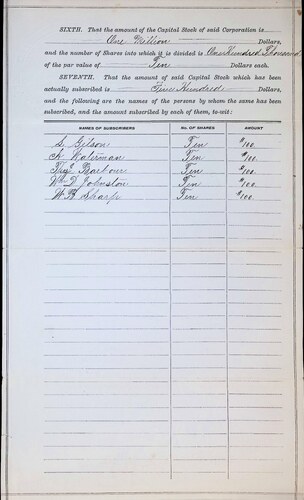 SIXTH. That the amount of the Capital Stock of said Corporation is
One Million Dollars,
and the number of Shares into which it is divided is One Hundred Thousand
of the par value of Ten Dollars each.
SEVENTH. That the amount of said Capital Stock which has been
actually subscribed is Five Hundred Dollars,
and the following are the names of the persons by whom the same has been
subscribed, and the amount subscribed by each of them, to-wit:
NAMES OF SUBSCRIBERS NO. OF SHARES AMOUNT
S. Gilson Ten $100.
A. Waterman Ten $100.
Barbour Ten $100.
Wm D. Johnston Ten $100.
W B Sharp Ten $100.